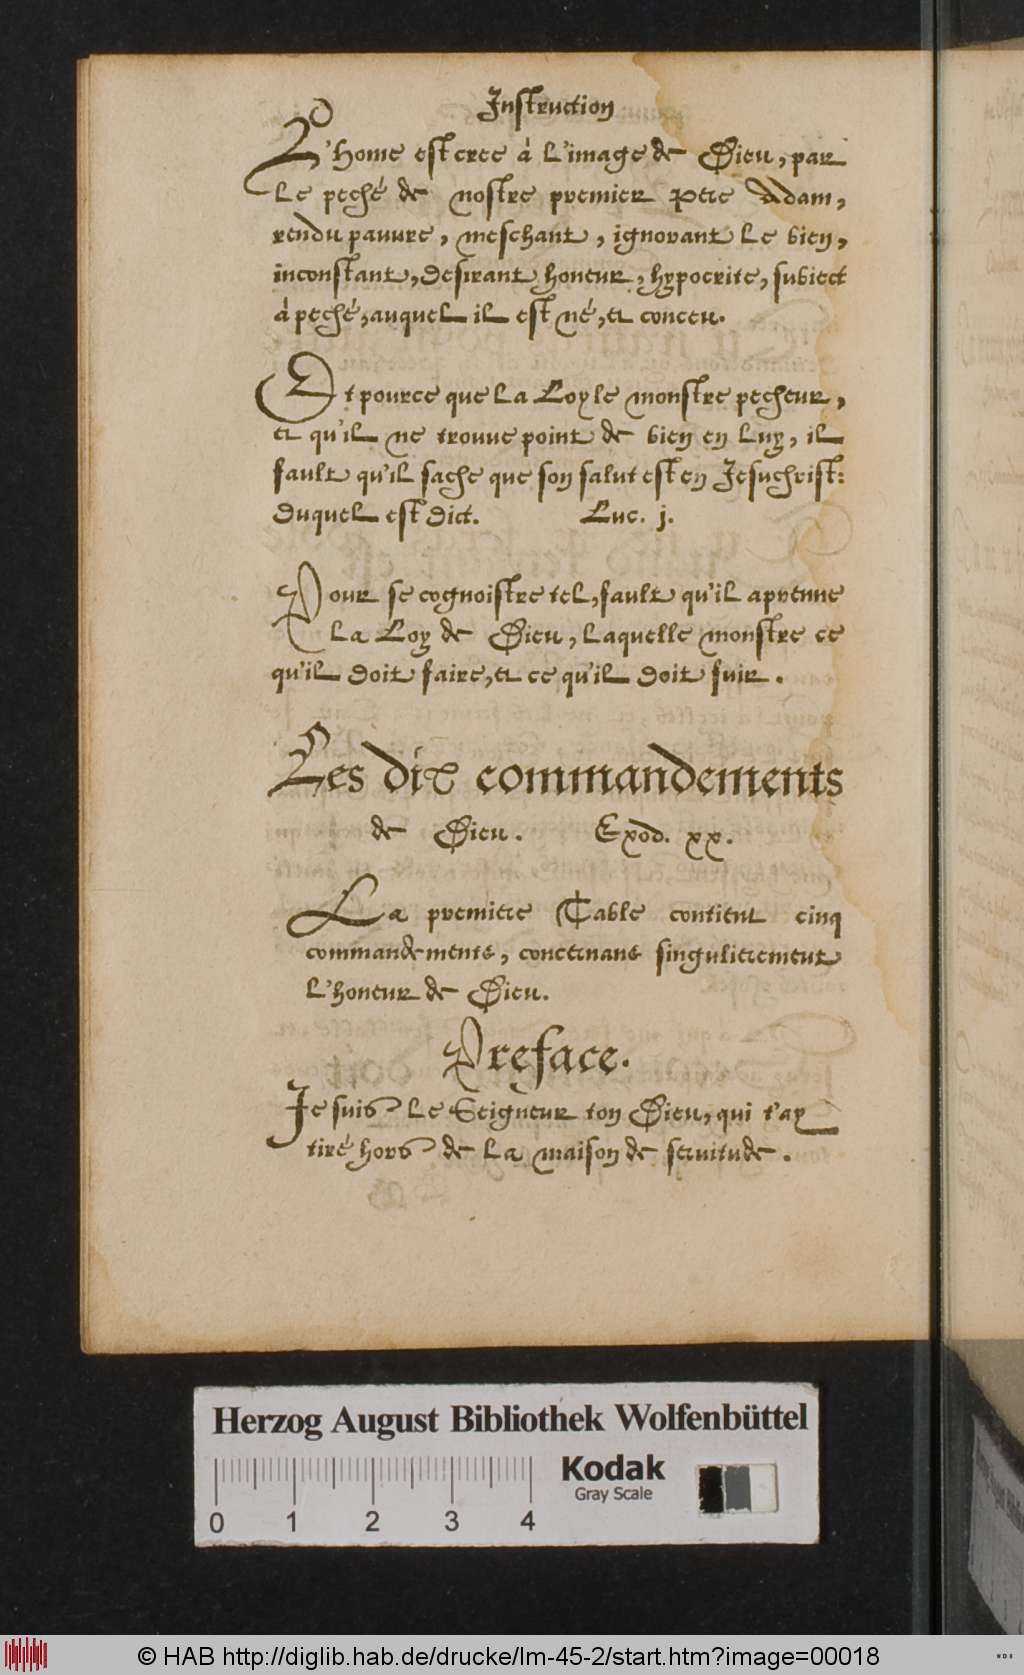 Instruction
L'home est cree à l'image de Dieu, par
le peché de nostre premier pere Adam,
rendu pauure, meschant, ignorant le bien,
inconstant, desirant honeur, hypocrite, subiect
à peché, auquel il est né, et conceu.
Et pource que la Loy le monstre pecheur,
et qu'il ne trouue point de bien en luy, il
fault qu'il sache que son salut est en Jesuchrist:
duquel est dict. Luc. j.
Pour se cognoistre tel, fault qu'il aprenne
la Loy de Dieu, laquelle monstre ce
qu'il doit faire, et ce qu'il doit fuir.
Les dix commandements
de Dieu. Exod. xx.
La premiere Table contient cinq
commandements, concernans singulierement
l'honeur de Dieu.
Preface.
Je suis le Seigneur ton Dieu, qui t'ay
tiré hors de la maison de seruitude.
Herzog August Bibliothek Wolfenbüttel
Kodak
Gray Scale
0 1 2 3 4
© HAB http://diglib.hab.de/drucke/lm-45-2/start.htm?image=00018